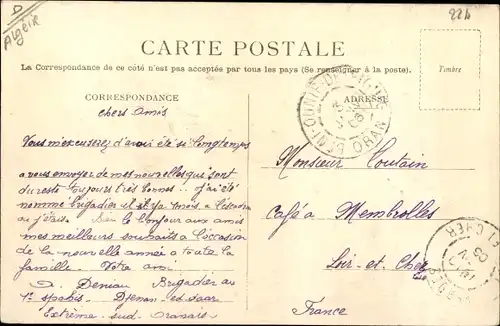 D
Algéir
224
CARTE POSTALE
La Correspondance de ce côté n'est pas acceptés par tous les pays (Se renseigner à la poste).
Timbre
CORRESPONDANCE
ADRESSE
chers Amis
Vous m'excuserez d'avoir été si longtemps
a vous envoyer de mes nouvelles qui sont
du reste toujours très bonnes.. j'ai été
nommé brigadier il y a mois, a
ou j'étais. bien le bonjour aux amis
mes meilleurs souhaits a l'occasion
de la nouvelle année a toute la
famille. Votre ami
A. Deniau Brigadier au
1er spahis. Djenan ed-daar
Extrème sud Oranais
ORAN
Monsieur Coutain
Café a Membrolles
Loir-et-Cher
France
ET CHER